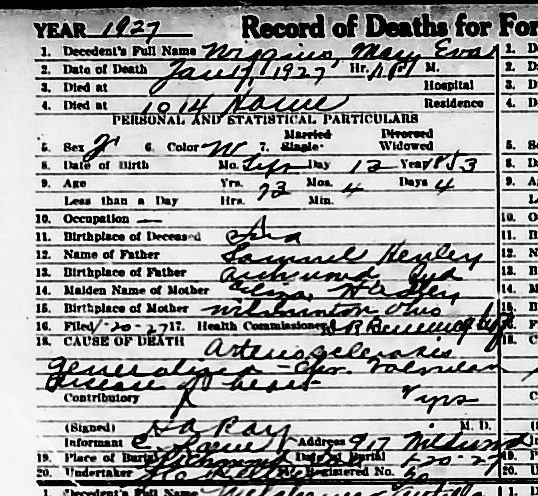 YEAR 1927 Record of Deaths for For
1. Decedent's Full Name Wiggins, Mary Eva
2. Date of Death Jan 17, 1927 Hr. M.
3. Died at Hospital
4. Died at 1014 Residence
PERSONAL AND STATISTICAL PARTICULARS
Married Divorced
5. Sex F 6. Color W 7. Single Widowed
8. Date of Birth Mo. Sep Day 13 Year 1853
9. Age Yrs. 73 Mos. 4 Days 4
Less than a Day Hrs. Min.
10. Occupation —
11. Birthplace of Deceased Ind
12. Name of Father Samuel Henley
13. Birthplace of Father Richmond Ind
14. Maiden Name of Mother Eliza Hadley
15. Birthplace of Mother Wilmington Ohio
16. Filed 1-20-27 17. Health Commissioner
18. CAUSE OF DEATH Arteriosclerosis
Generalized - Chr. Valvular
Disease of heart
Contributory yrs
(Signed) Ray M. D.
Informant Address 917
19. Place of Burial Richmond Date of Burial 1-20-27
20. Undertaker Registered No.
1. Decedent's Full Name